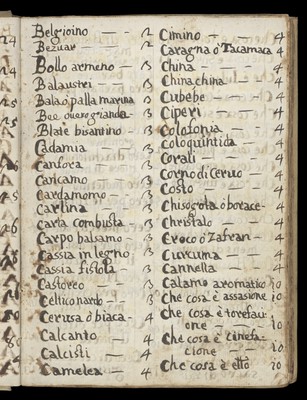 Belgioino — 2
Bezuar — 2
Bollo armeno — 3
Balaustri — 3
Bala o palla marina 3
Bee ouero grianda 3
Blate bisantino — 3
Cadamia — 3
Canfora — 3
Caricamo — 3
Cardamomo — 3
Carlina — 3
Carta combusta 3
Carpo balsamo — 3
Cassia in legno 3
Cassia fistola 3
Castoreo — 3
Celtico nardo — 3
Cerusa ò biaca - 4
Calcanto — 4
Calcisti — 4
Camelea — 4
Cimino — 4
Caragna ò Tacamaca 4
China — 4
China china — 4
Cubebe — 4
Ciperi — 4
Colofonia — 4
Coloquintida 4
Corali — 4
Corno di Ceruo — 4
Costo — 4
Chisogola ò borace - 4
Christalo — 4
Croco ò Zafran — 4
Curcuma — 4
Cannella — 4
Calamo aromatico 10
Che cosa è assasione 10
Che cosa è torefau:
one — 10
Che cosa è cinefa:
cione — 10
Che cosa è
24
24
25
25
26